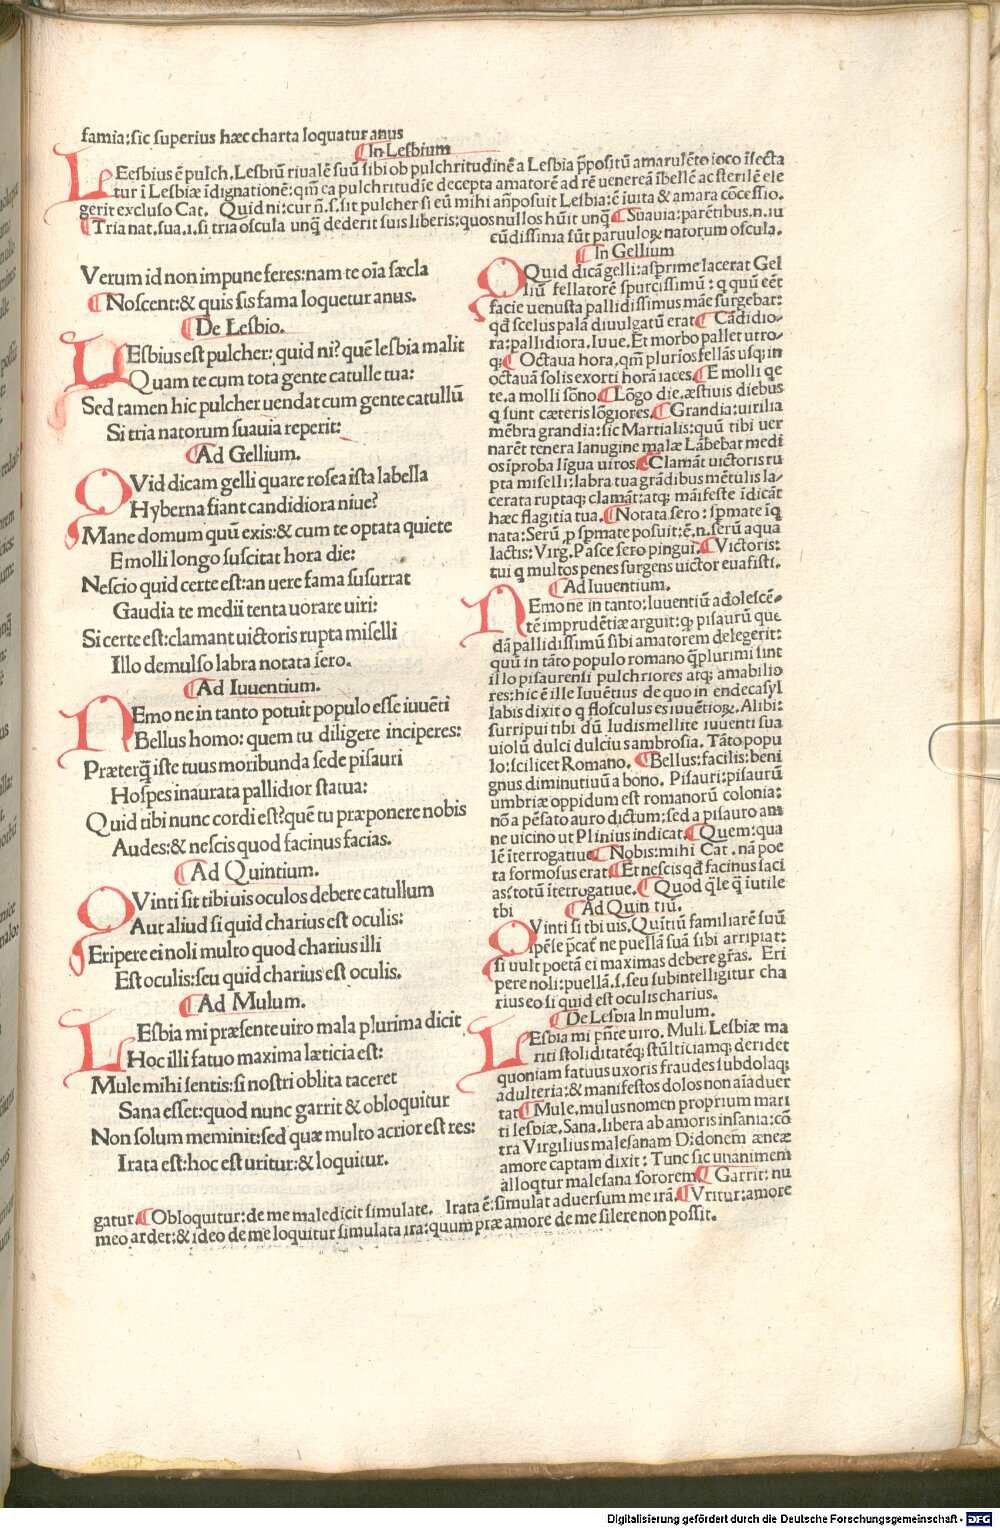 famia:sic superius hæc charta loquatur anus
¶In Lesbium
LEesbius ē pulch. Lesbiū riualē suū sibi ob pulchritudinē a Lesbia p̄positū amarulēto ioco īsecta
tur ī Lesbiæ īdignationē: qm̄ ea pulchritudīe decepta amatorē ad rē venereā ībellē ac sterilē ele
gerit excluso Cat. Quid ni: cur n̄.s.sit pulcher si eū mihi an̄posuit Lesbia: ē iuita & amara cōcessio.
¶Tria nat. sua.i.si tria oscula unq̄ dederit suis liberis: quos nullos hūit unq̄ ¶Suauia: parētibus.n.iu
cūdissima sūt paruuloꝝ natorum oscula.
Verum id non impune feres: nam te oīa sæcla
¶Noscent: & quis sis fama loquetur anus.
¶De Lesbio.
LEsbius est pulcher: quid ni? quē lesbia malit
Quam te cum tota gente catulle tua:
Sed tamen hic pulcher uendat cum gente catullū
Si tria natorum suauia reperit:
¶Ad Gellium.
QVid dicam gelli quare rosea ista labella
Hyberna fiant candidiora niue?
Mane domum quū exis: & cum te optata quiete
E molli longo suscitat hora die:
Nescio quid certe est: an uere fama susurrat
Gaudia te medii tenta uorare uiri:
Si certe est: clamant uictoris rupta miselli
Illo demulso labra notata sero.
¶Ad Iuuentium.
NEmo ne in tanto potuit populo esse iuuēti
Bellus homo: quem tu diligere inciperes:
Præterq̄ iste tuus moribunda sede pisauri
Hospes inaurata pallidior statua:
Quid tibi nunc cordi est? quē tu præponere nobis
Audes: & nescis quod facinus facias.
¶Ad Quintium.
QVinti sit tibi uis oculos debere catullum
Aut aliud si quid charius est oculis:
Eripere ei noli multo quod charius illi
Est oculis: seu quid charius est oculis.
¶Ad Mulum.
LEsbia mi præsente uiro mala plurima dicit
Hoc illi fatuo maxima læticia est:
Mule mihi sentis: si nostri oblita taceret
Sana esset: quod nunc garrit & obloquitur
Non solum meminit: sed quæ multo acrior est res:
Irata est: hoc est uritur: & loquitur.
¶In Gellium
QQuid dicā gelli: asprime lacerat Gel
liū fellatorē spurcissimū: q quū eēt
facie uenusta pallidissimus māe surgebat:
qd̄ scelus palā diuulgatū erat ¶Cādidio
ra: pallidiora. Iuue. Et morbo pallet utro
q; ¶Octaua hora, qm̄ plurios fellās usq; in
octauā solis exorti horā iaces. ¶E molli qe
te. a molli sōno. ¶Lōgo die. æstiuis diebus
q sunt cæteris lōgiores. ¶Grandia: uirilia
mēbra grandia: sic Martialis: quū tibi uer
narēt tenera lanugine malæ Lābebat medi
os īproba līgua uiros. ¶Clamāt uictoris ru
pta miselli: labra tua grādibus mētulis la
cerata ruptaq; clamāt: atq; māifeste īdicāt
hæc flagitia tua. ¶Notata sero: spmate īq
nata: Serū p spmate posuit: ē.n.serū aqua
lactis: Virg. Pasce sero pingui. ¶Victoris:
tui q multos penes surgens uictor euasisti.
¶Ad Iuuentium.
NEmo ne in tanto; Iuuentiū adolescē-
tē imprudētiæ arguit: q; pisaurū que
dā pallidissimū sibi amatorem delegerit:
quū in tāto populo romano q̄plurimi sint
illo pisaurensi pulchriores atq; amabilio
res: hic ē ille Iuuētius de quo in endecasyl
labis dixit o q flosculus es iuuētioꝝ. Alibi:
surripui tibi dū ludis mellite iuuenti sua
uiolū dulci dulcius ambrosia. Tāto popu
lo: scilicet Romano. ¶Bellus: facilis: beni
gnus diminutiuū a bono. Pisauri: pisaurū
umbriæ oppidum est romanorū colonia:
nō a pēsato auro dictum: sed a pisauro am
ne uicino ut Plinius indicat. ¶Quem: qua
lē īterrogatiue. ¶Nobis: mihi Cat. nā poe
ta formosus erat. ¶Et nescis qd̄ facinus faci
as: totū īterrogatiue. ¶Quod q̄le q̄ īutile
tbi ¶Ad Quin tiū.
QVinti si tbi uis. Quītiū familiarē suū
īpēse p̄cat̄ ne puellā suā sibi arripiat:
si uult poetā ei maximas debere gr̄as. Eri
pere noli: puellā.s. seu subintelligitur cha
rius eo si quid est oculis charius.
¶De Lesbia In mulum.
LEsbia mi pn̄te uiro. Muli. Lesbiæ ma
riti stoliditatēq; stūlticiamq; deridet
quoniam fatuus uxoris fraudes subdolaq;
adulteria: & manifestos dolos non aīaduer
tat ¶Mule, mulus nomen proprium mari
ti lesbiæ. Sana. libera ab amoris insania: cō
tra Virgilius malesanam Didonem æneæ
amore captam dixit: Tunc sic unanimem
alloqtur malesana sororem. ¶Garrit: nu
gatur. ¶Obloquitur: de me maledicit simulate. Irata ē: simulat aduersum me irā. ¶Vritur: amore
meo ardet: & ideo de me loquitur simulata ira: quum præ amore de me silere non possit.
Digitalisierung gefördert durch die Deutsche Forschungsgemeinschaft - DFG